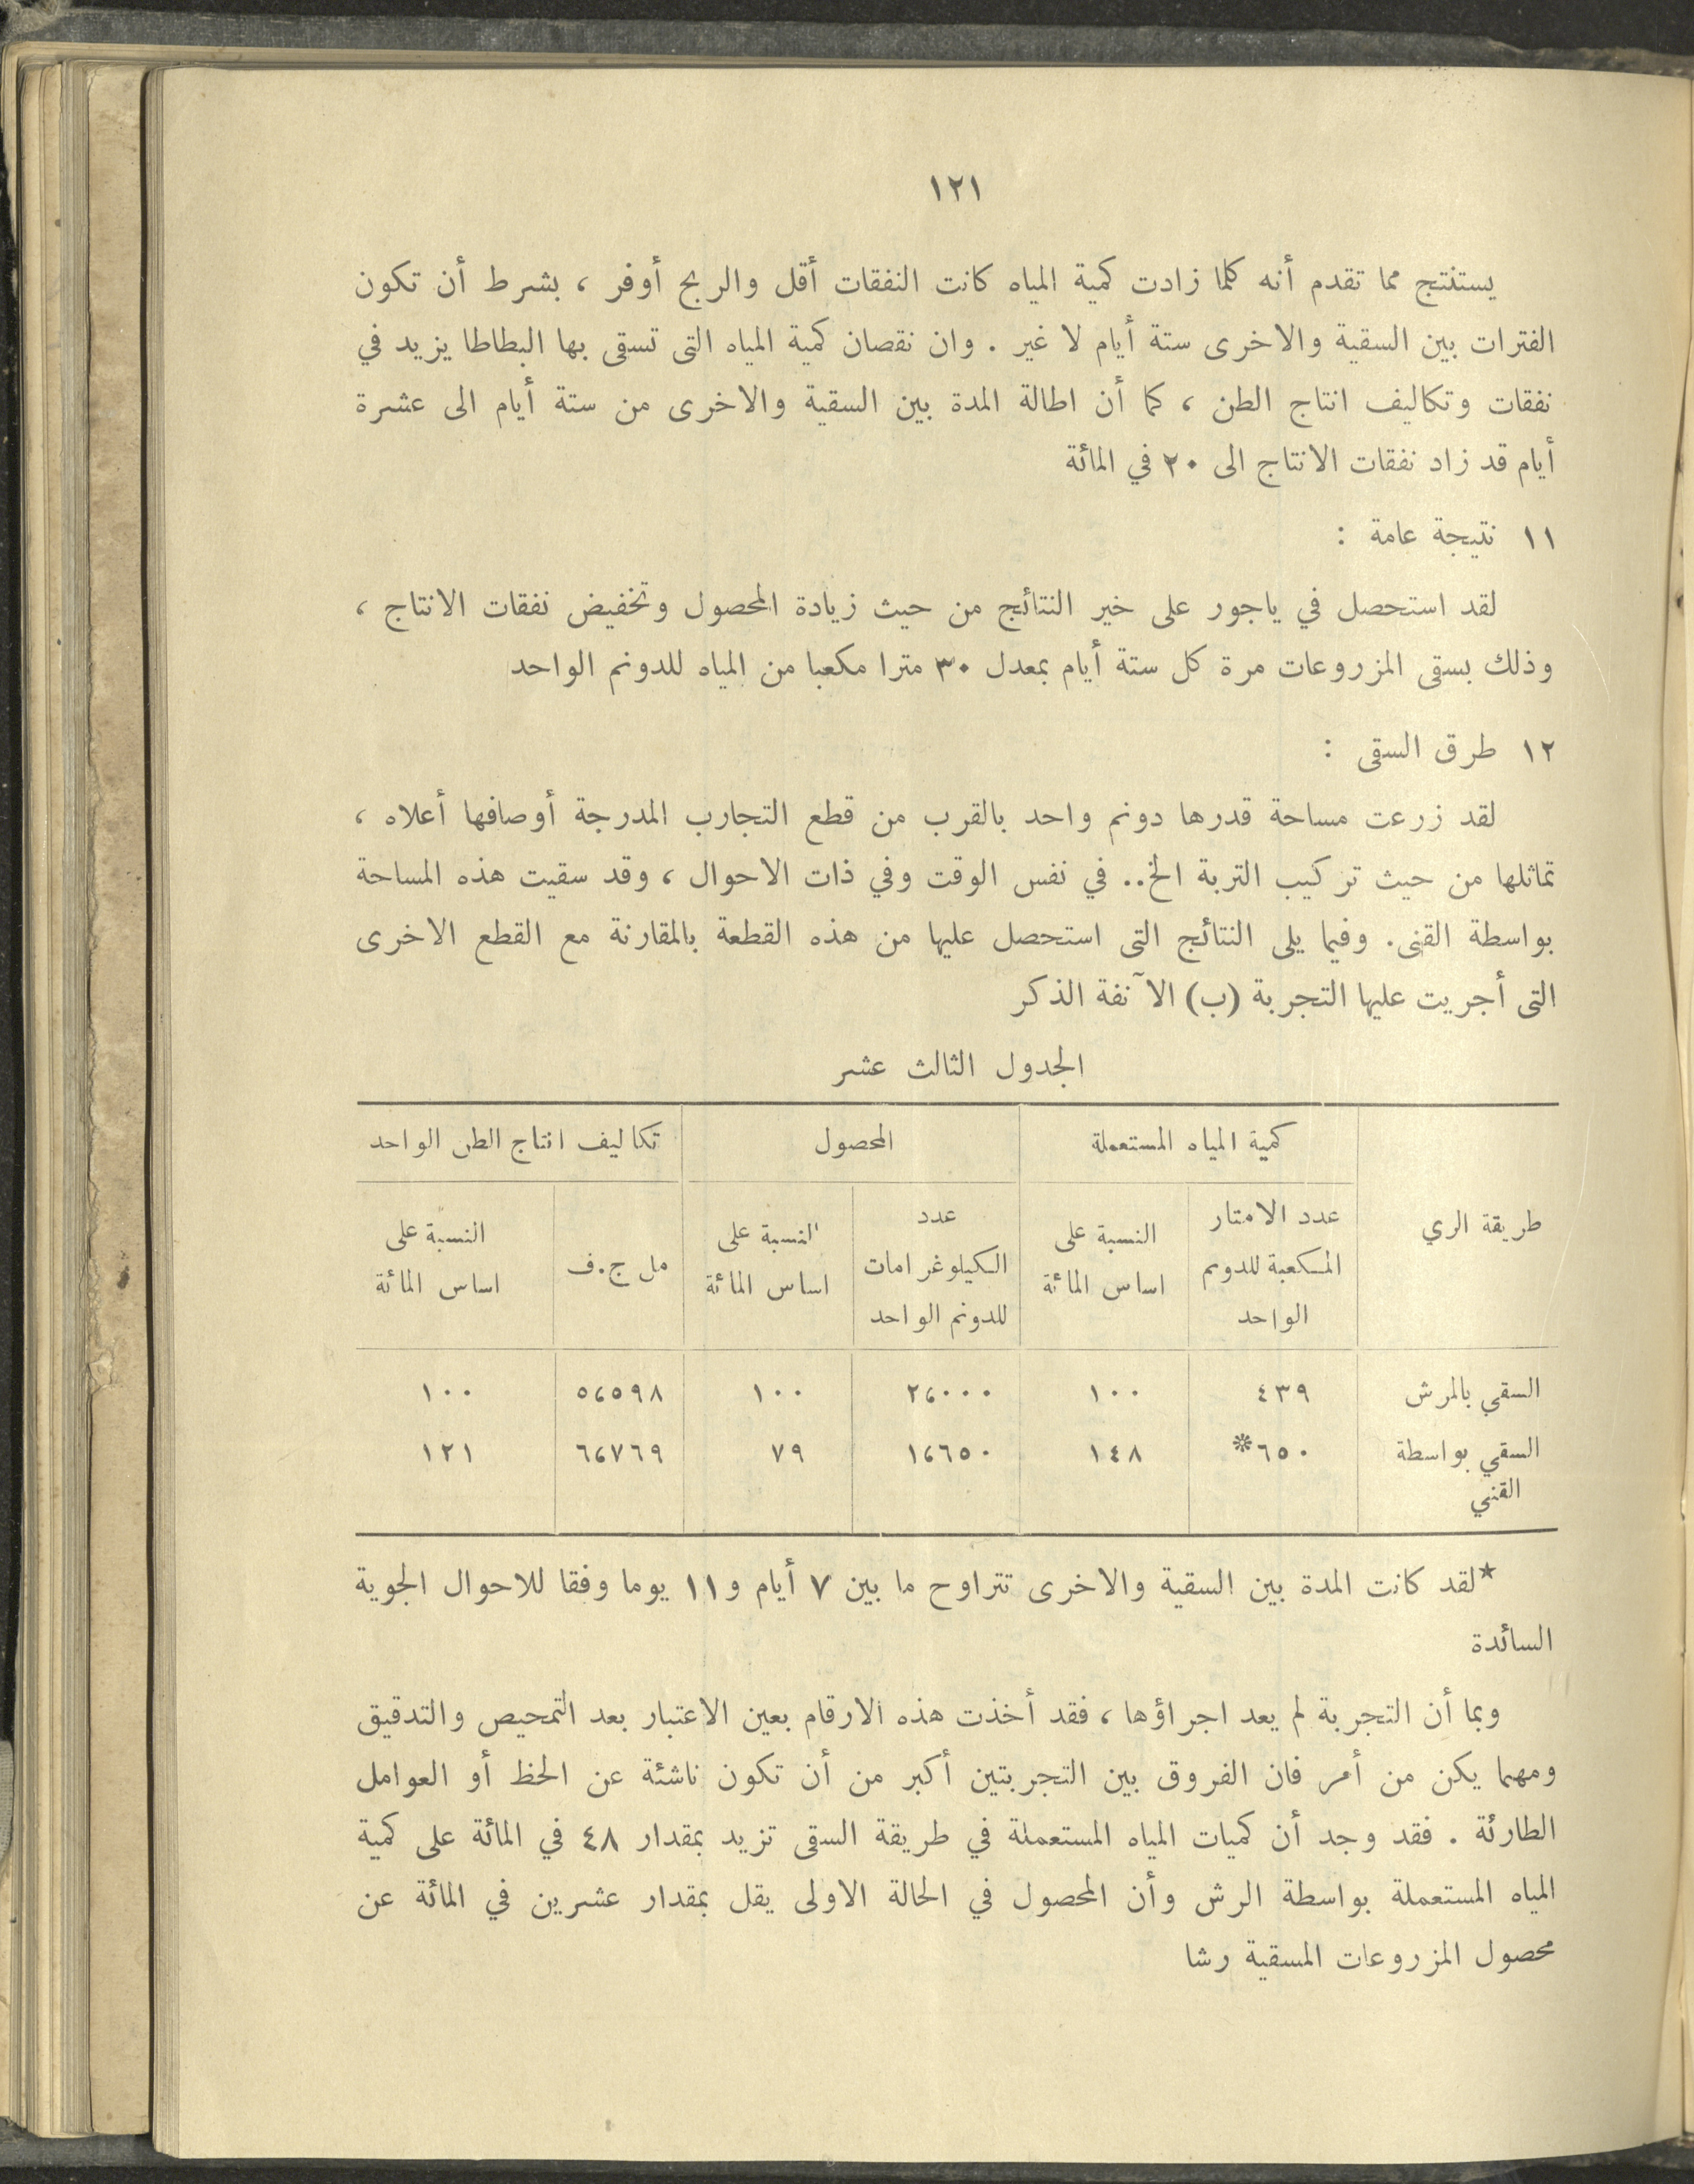 ١٢١
يستنتج مما تقدم أنه كلما زادت كمية المياه كانت النفقات أقل والربح أوفر ، بشرط أن تكون
الفترات بين السقية والاخرى ستة أيام لا غير . وان نقصان كمية المياه التى تسقى بها البطاطا يزيد في
نفقات وتكاليف انتاج الطن ، كما أن اطالة المدة بين السقية والاخرى من ستة أيام الى عشرة
أيام قد زاد نفقات الانتاج الى ٢٠ في المائة
١١ نتيجة عامة :
لقد استحصل في ياجور على خير النتائج من حيث زيادة المحصول وتخفيض نفقات الانتاج ،
وذلك بسقى المزروعات مرة كل ستة أيام بمعدل ٣٠ مترا مكعبا من المياه للدونم الواحد
١٢ طرق السقى :
لقد زرعت مساحة قدرها دونم واحد بالقرب من قطع التجارب المدرجة أوصافها أعلاه ،
تماثلها من حيث تركيب التربة الخ.. في نفس الوقت وفي ذات الاحوال ، وقد سقيت هذه المساحة
بواسطة القنى. وفيما يلى النتائج التى استحصل عليها من هذه القطعة بالمقارنة مع القطع الاخرى
التى أجريت عليها التجربة (ب) الآنفة الذكر
الجدول الثالث عشر
كمية المياه المستعملة المحصول تكاليف انتاج الطن الواحد
طريقة الري عدد الامتار النسبة على عدد النسبة على مل ج.ف النسبة على
المكعبة للدونم اساس المائة الكيلوغرامات اساس المائة اساس المائة
الواحد للدونم الواحد
السقي بالمرش ٤٣٩ ١٠٠ ٢،٠٠٠ ١٠٠ ٥،٥٩٨ ١٠٠
السقي بواسطة ٦٥٠* ١٤٨ ١،٦٥٠ ٧٩ ٦،٧٦٩ ١٢١
القني
*لقد كانت المدة بين السقية والاخرى تتراوح ما بين ٧ أيام و١١ يوما وفقا للاحوال الجوية
السائدة
وبما أن التجربة لم يعد اجراؤها ، فقد أخذت هذه الارقام بعين الاعتبار بعد التمحيص والتدقيق
ومهما يكن من أمر فان الفروق بين التجربتين أكبر من أن تكون ناشئة عن الحظ أو العوامل
الطارئة . فقد وجد أن كميات المياه المستعملة في طريقة السقى تزيد بمقدار ٤٨ في المائة على كمية
المياه المستعملة بواسطة الرش وأن المحصول في الحالة الاولى يقل بمقدار عشرين في المائة عن
محصول المزروعات المسقية رشا